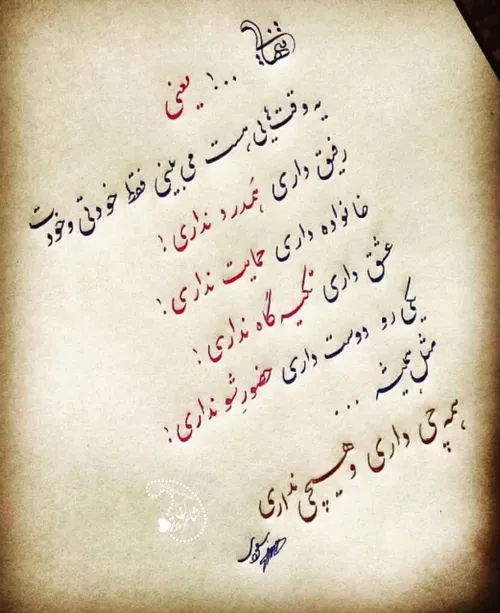 تنهایی
... یعنی
یه وقت‌هایی هست می‌بینی فقط خودتی و خودت
رفیق داری همدرد نداری!
خانواده داری حمایت نداری!
عشق داری تکیه‌گاه نداری!
یکی رو دوست داری حضورِشو نداری!
مثل همیشه ...
همه چی داری و هیچی نداری